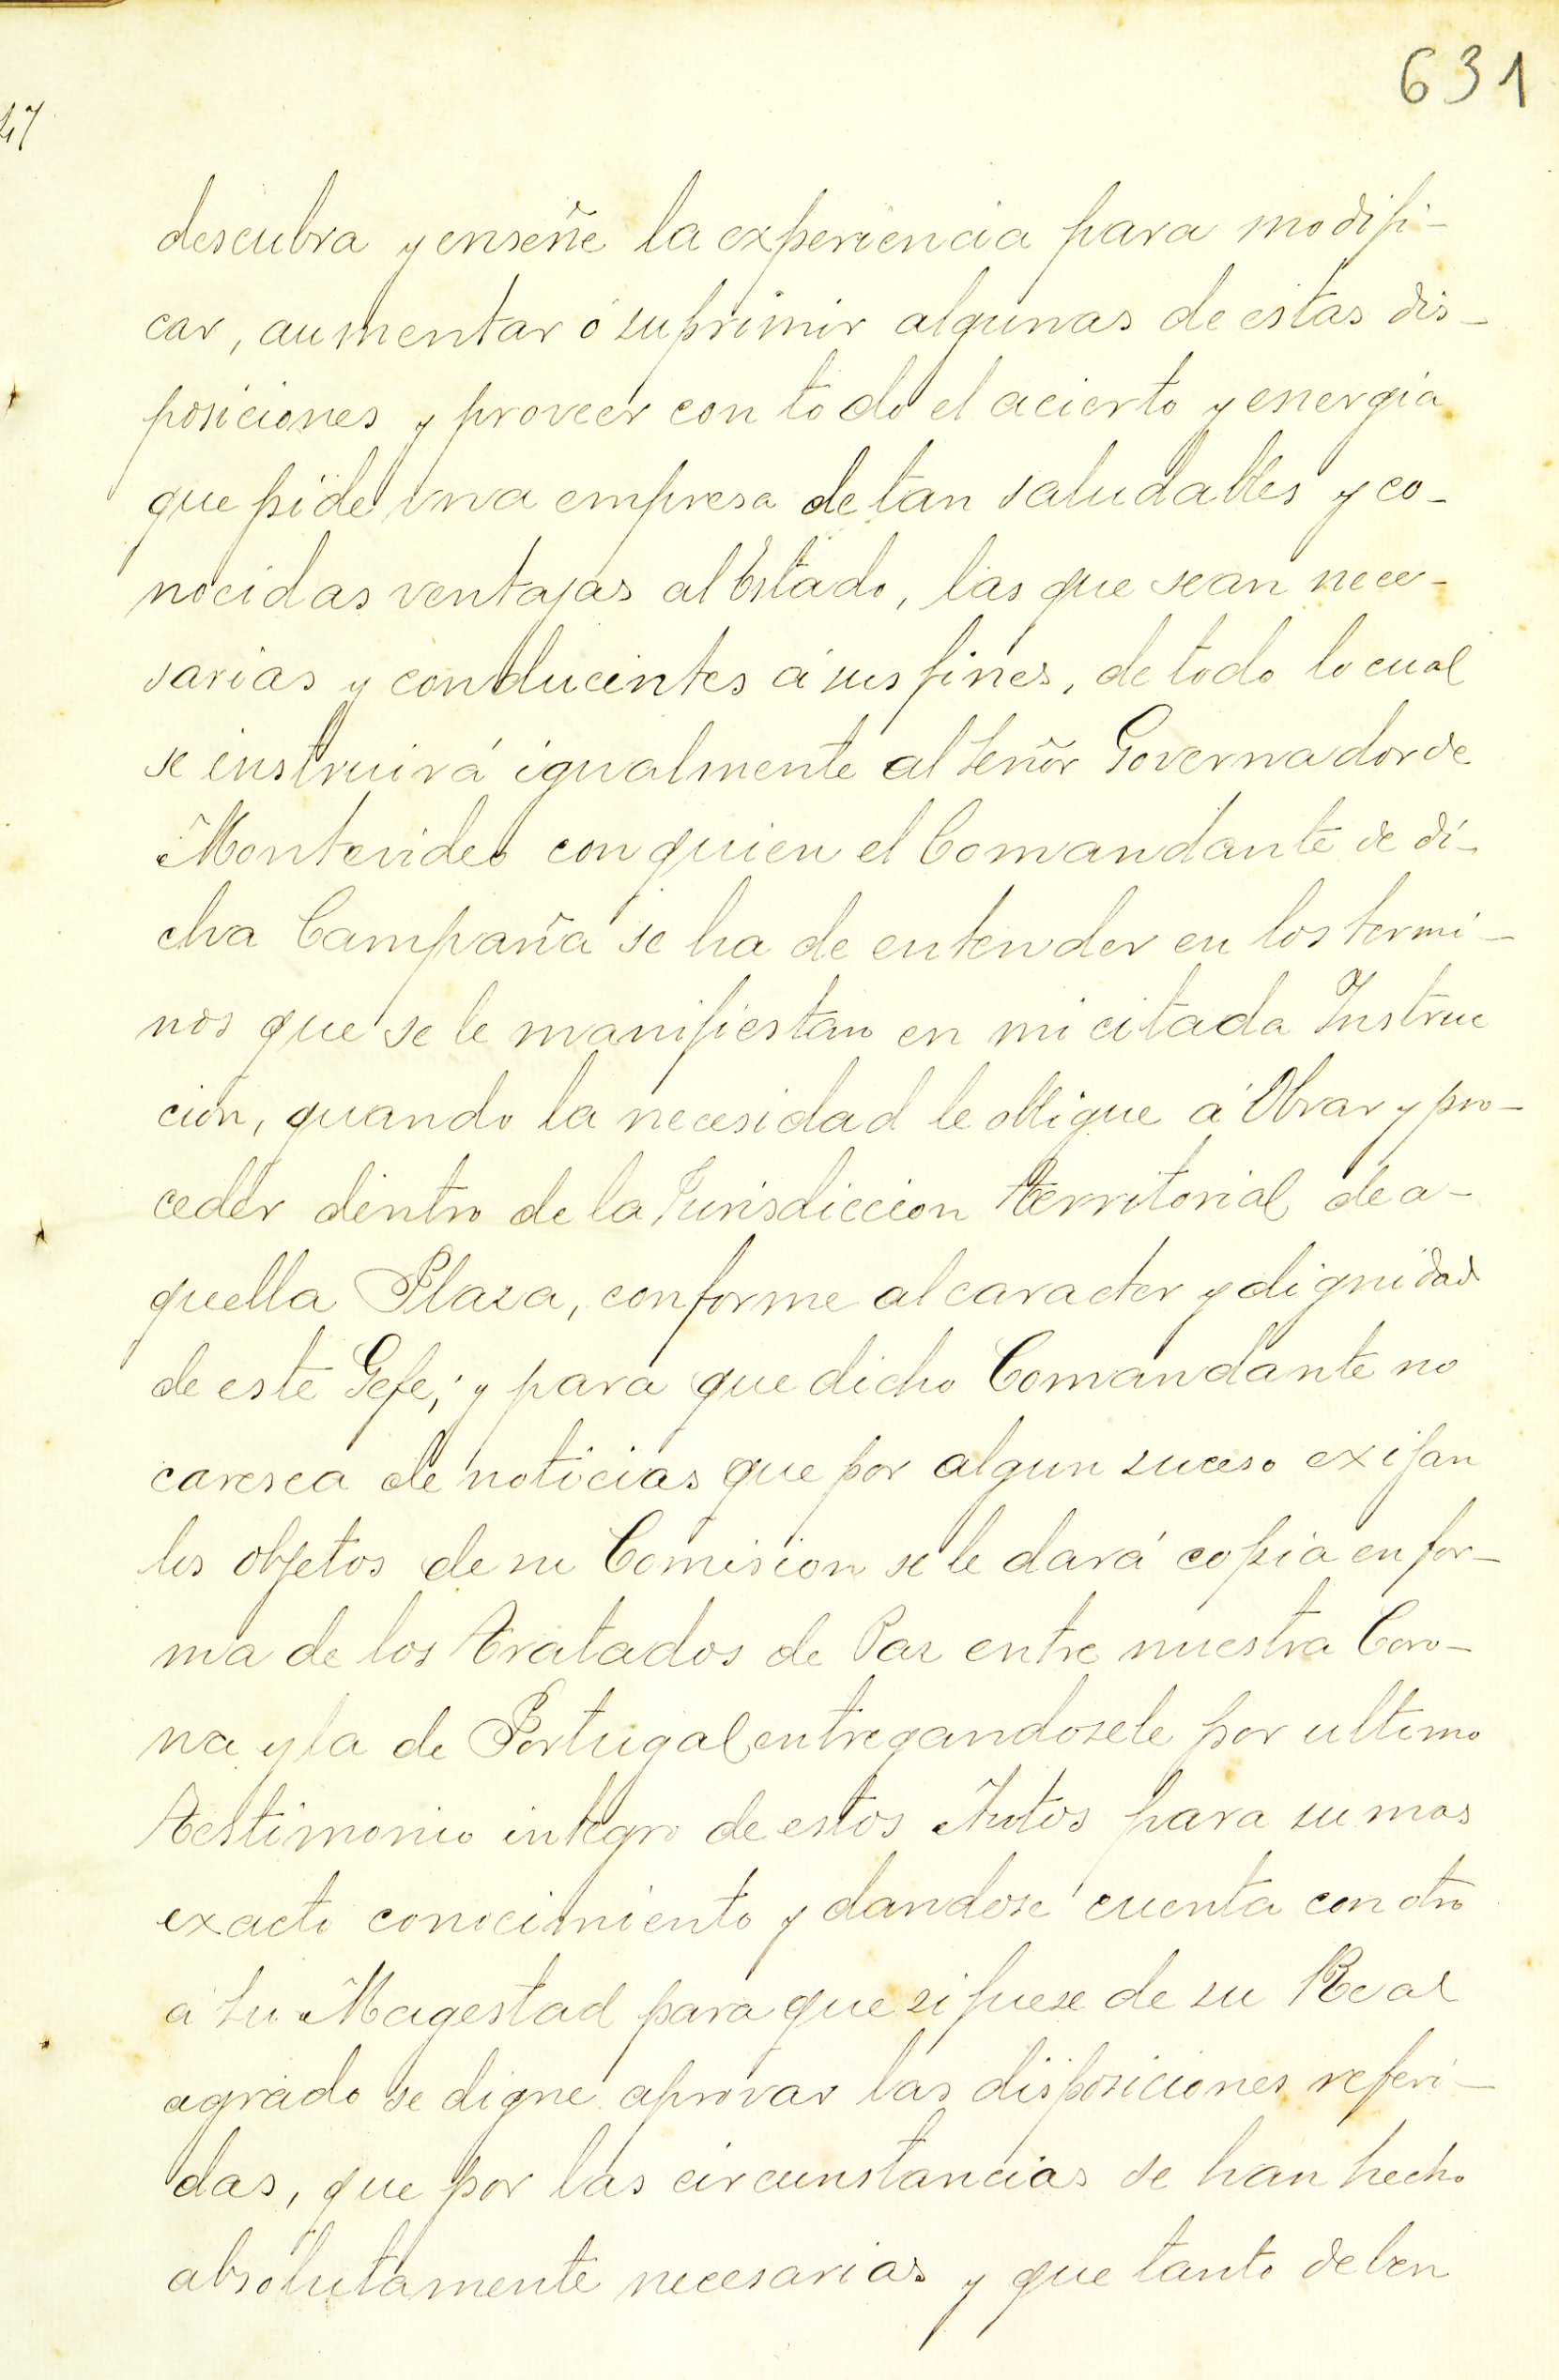 631
descubra y enseñe la experiencia para modifi-
car, aumentar ó suprimir algunas de estas dis-
posiciones y proveer con todo el acierto y energia
que pide una empresa de tan saludables y co-
nocidas ventajas al Estado, las que sean nece-
sarias y conducentes á sus fines, de todo lo cual
se instruirá igualmente al Señor Governador de
Montevideo con quien el Comandante de di-
cha Campaña se ha de entender en los termi-
nos que se le manifiestan en mi citada Instruc
cion, quando la necesidad le obligue á Obrar y pro-
ceder dentro de la Jurisdiccion territorial de a-
quella Plaza, conforme al caracter y dignidad
de este Gefe; y para que dicho Comandante no
caresca de noticias que por algun suceso exijan
los objetos de su Comision se le dará copia en for-
ma de los Tratados de Paz entre nuestra Coro-
na y la de Portugal entregandosele por ultimo
Testimonio integro de estos Autos para su mas
exacto conocimiento y dandose cuenta con otro
a Su Magestad para que si fuese de su Real
agrado se digne aprovar las disposiciones referi-
das, que por las circunstancias se han hecho
absolutamente necesarias y que tanto deben